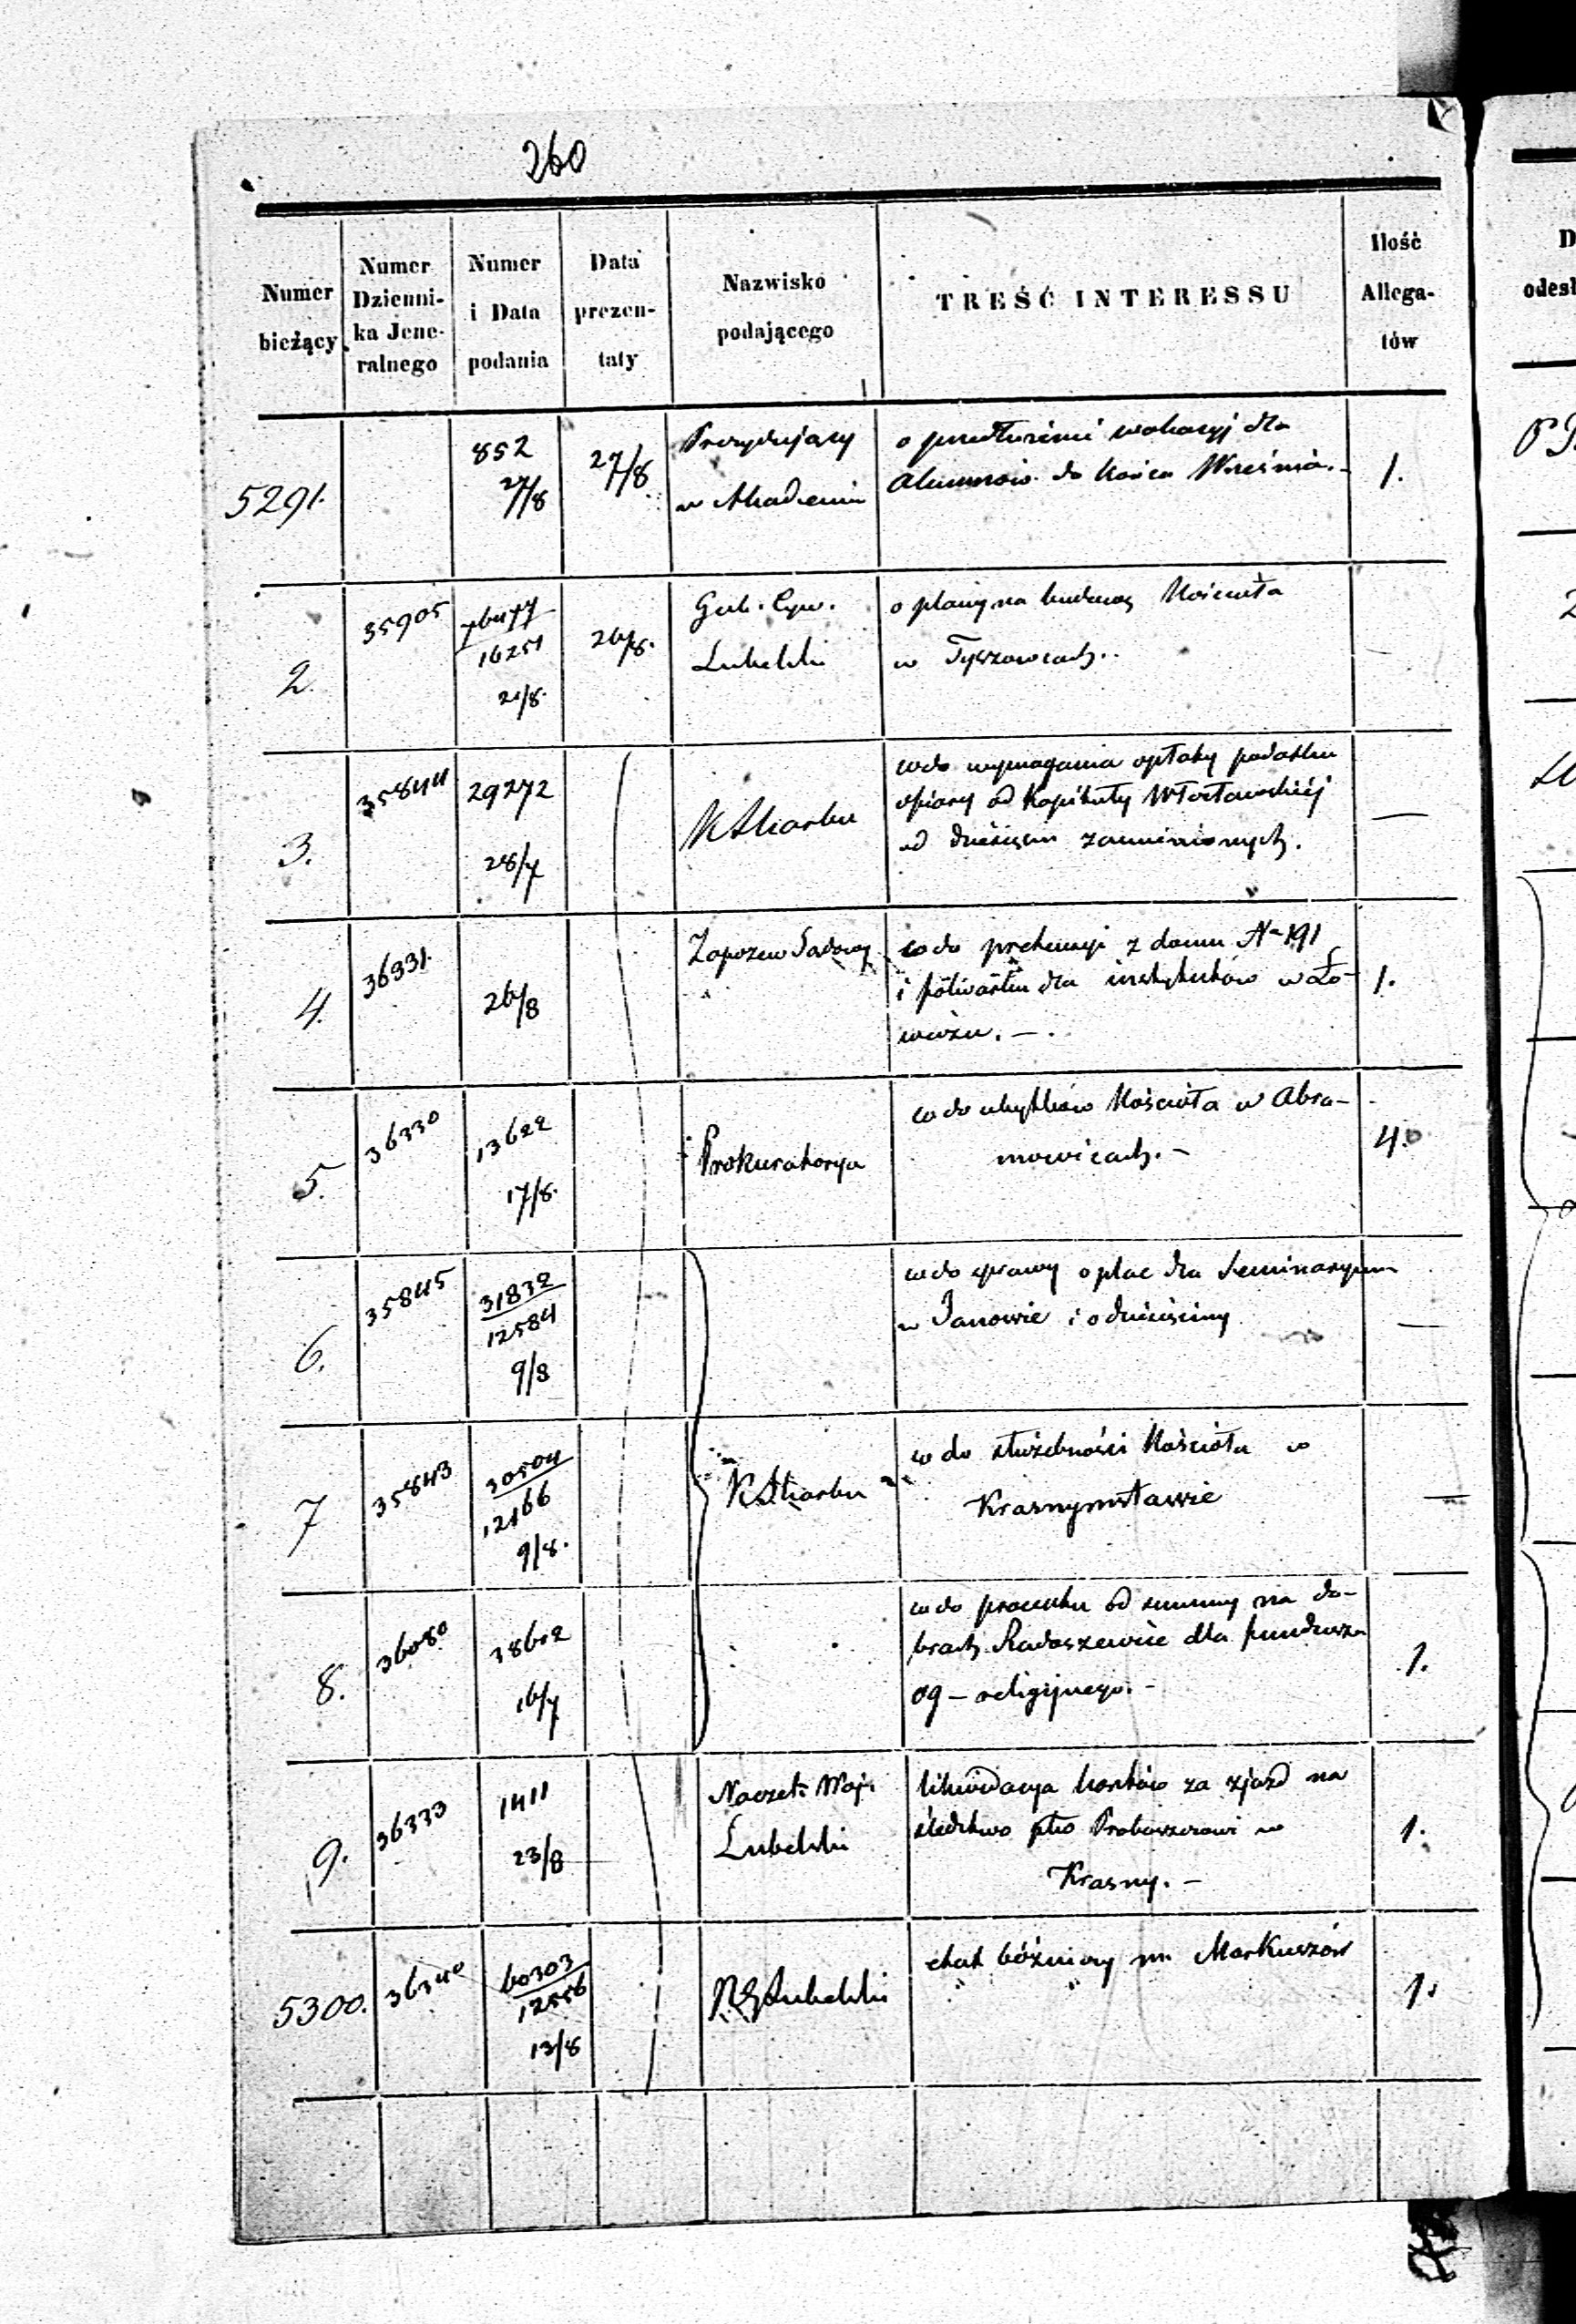 260
Numer bieżący
Numer Dzienni-ka Jene-ralnego
Numer i Data podania
Data prezen-taty
Nazwisko podającego
TREŚĆ INTERESSU
Ilość Allega-tów
5291.
852
27/8
27/8
Prezydujący
w Akademii
o przedłużenie wakacyj dla
Alumnów do końca Września.
1.
2.
35905
16251
21/8.
26/8.
Gub. Cyw.
Lubelski
o plany na budowę Kościoła
w Tyszowcach.
3.
35844
29272
28/7
K Skarbu
co do wymagania opłaty podatku
ofiary od Kapituły Włocławskiéj
od dziesięcin zamienionych.
—
4.
36331.
26/8
Zapozew Sądowy
co do pretensyi z domu N 191
i folwarku dla instytutów w Ło-
wiczu. —.
1.
5.
36330
13622
17/8.
Prokuratorya
co do użytków Kościoła w Abra-
mowicach. —
4.
6.
35845
31832
12584
9/8
co do sprawy o plac dla Seminaryum
w Janowie i o dziesięciny
—
7
35843
30504
12166
9/8.
K Skarbu
co do służebności Kościoła w
Krasnymstawie
—
8.
36080
38602
16/7
co do procentu od summy na do-
brach Radoszewice dla funduszu
og — religijnego. —
1.
9.
36333
1411
23/8
Naczel. Woj.
Lubelski
likwidacja kosztów za zjazd na
śledztwo pko Proboszczowi w
Krasny. —
1.
5300.
36340
60303
12556
13/8
RG Lubelski
etat bóżniczy m. Markuszów
1.
D
odesł